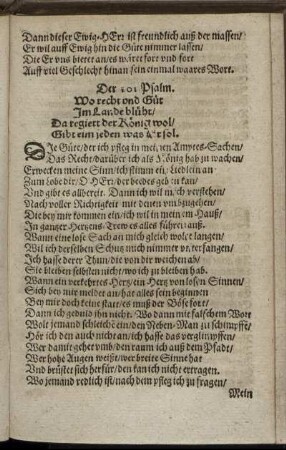 Dann dieser Ewig-HErr ist freundlich auß der massen/
Er wil auff Ewig hin die Güte nimmer lassen/
Die Er uns bietet an/es wäret fort und fort
Auff viel Geschlecht hinan sein einmal waares Wort.
Der 101 Psalm.
Wo recht vnd Güt
Im Lande blüht/
Da regiert der König wol/
Gibt eim jeden was Er sol.
DIe Güte/der ich pfleg in meinen Ampтes-Sachen/
Das Recht/darüber ich als König hab zu wachen/
Erwecken meine Sinn/ich stimm ein Liedlein an
Zum Lobe dir/O HErr/der beydes geben kan/
Und gibt es allbereit. Dann ich wil mich verstehen/
Nach voller Richtigkeit mit denen umbzugehen/
Die bey mir kommen ein/ich wil in meinem Hauß/
In gantzer Hertzens-Trew es alles führen auß.
Wann eine lose Sach an mich gleich wolte langen/
Wil ich derselben Schutz mich nimmer unterfangen/
Ich hasse derer Thun/die von dir weichen ab/
Sie bleiben selbsten nicht/wo ich zu bleiben hab.
Wann ein verkehrtes Hertz/ein Hertz von losen Sinnen/
Sich bey mir meldet an/hat alles sein beginnen
Bey mir doch keine statt/es muß der Böse fort/
Dann ich geduld ihn nicht. Wo dann mit falschem Wort
Wolt jemand schleichs ein/den Neben-Man zu schimpffen/
Hör ich den auch nicht an/ich hasse das verglimpffen/
Wer damit gehet umb/den raum ich auß dem Pfadt/
Wer hohe Augen weißt/wer breite Sinne hat
Und brüstet sich herfür/den kan ich nicht ertragen.
Wo jemand redlich ist/nach dem pfleg ich zu fragen/
Mein